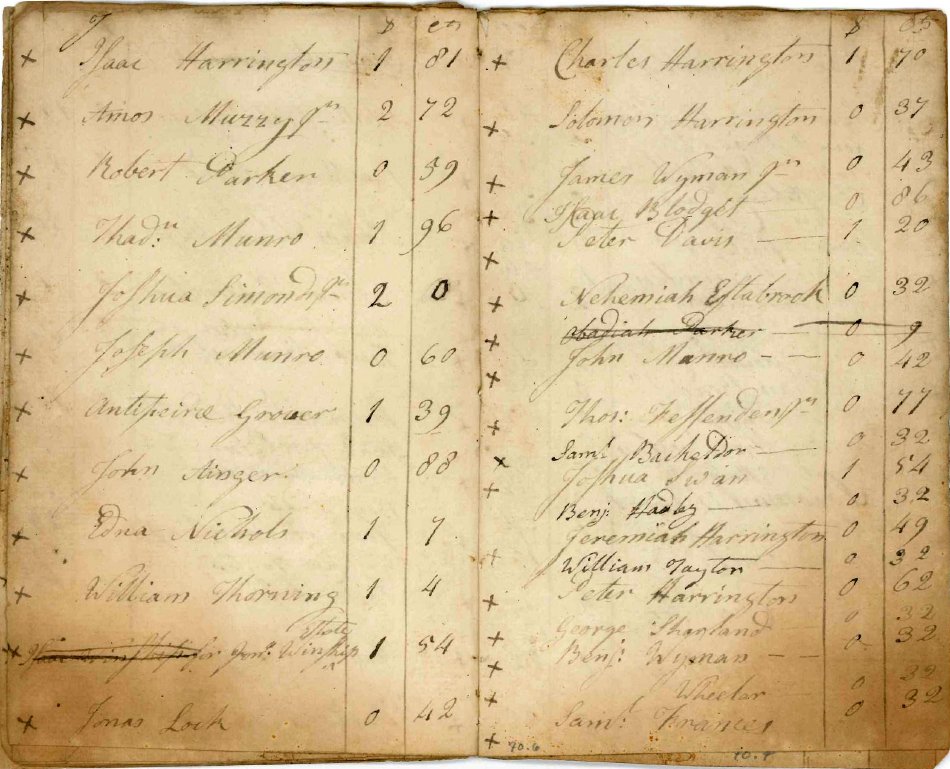 D cts
+ Isaac Harrington 1 81
+ Amos Muzzy Jr 2 72
+ Robert Parker 0 59
+ Thad.s Munro 1 96
+ Joshua Simonds Jr 2 0
+ Joseph Munro 0 60
+ Grover 1 39
+ John Ainger 0 88
+ Edna Nichols 1 7
+ William Thorning 1 4
+ for Jon.a Winship 1 54
+ Jonas Lock 0 42
D cts
+ Charles Harrington 1 70
+ Solomon Harrington 0 37
+ James Wyman Jr 0 43
+ Isaac Blodget 0 86
+ Peter Davis 1 20
+ Nehemiah Estabrook 0 32
+ Obadiah Parker 0 9
+ John Munro 0 42
+ Thos: Fessenden Jr 0 77
+ Saml Bacheldor 0 32
+ Joshua Swan 1 54
Benj: Hadly 0 32
+ Jeremiah Harrington 0 49
William Tayton 0 32
+ Peter Harrington 0 62
+ George 32
+ Benj: Wyman 0 32
+ Wheeler 0 32
+ Saml Frances 0 32
70.6
70.7